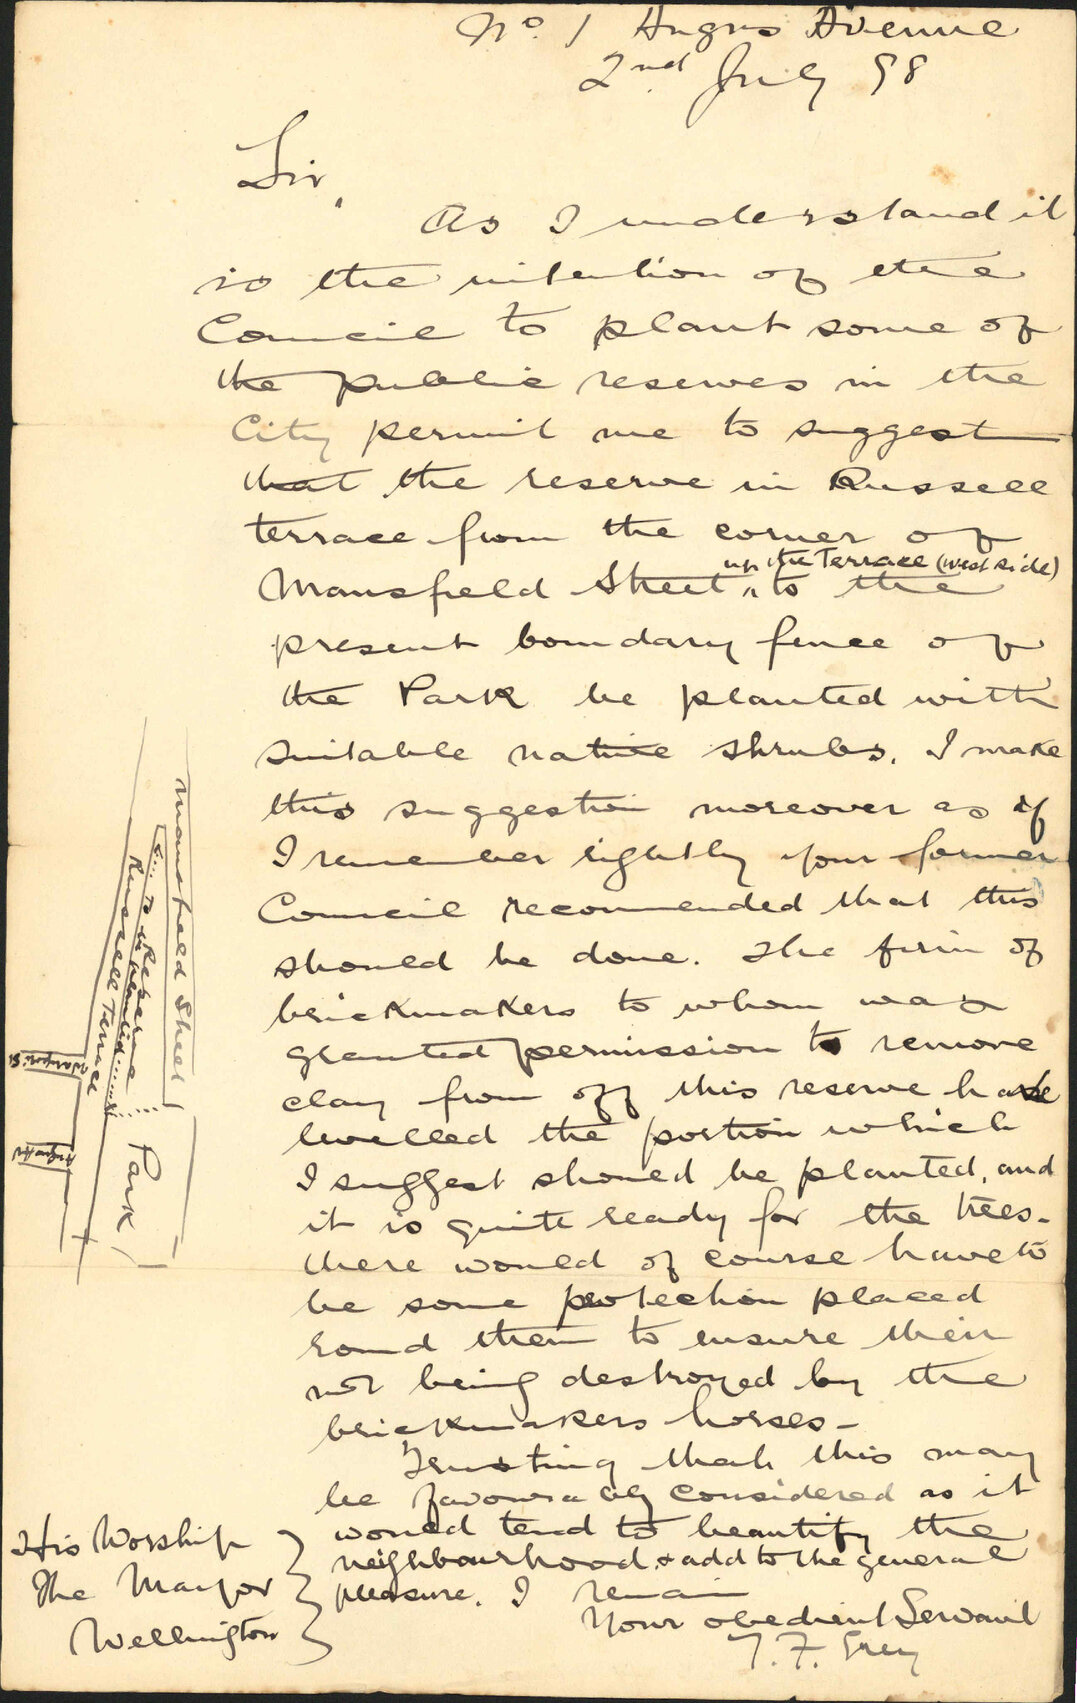 No. 1 Angus Avenue
2nd July 98
Sir,
As I understand it
is the intention of the
Council to plant some of
the public reserves in the
City permit me to suggest
that the reserve in Russell
terrace from the corner of
up the Terrace (west side)
Mansfield Street " to the
present boundary fence of
the Park be planted with
suitable native shrubs. I make
this suggestion moreover as if
I remember rightly your former
Council recommended that this
should be done. The firm of
brickmakers to whom was
granted permission to remove
clay from off this reserve have
levelled the portion which
I suggest should be planted, and
it is quite ready for the trees.
there would of course have to
be some protection placed
round them to ensure their
not being destroyed by the
brickmakers horses -
Trusting that this may
be favourably considered as it
would tend to beautify the
neighbourhood & add to the general
pleasure. I remain
Your obedient Servant
T. F. Grey
His Worship
The Mayor
Wellington
Mansfield Street
Reserve
to be planted
Russell Terrace
Waripori St
Angus Av
Park